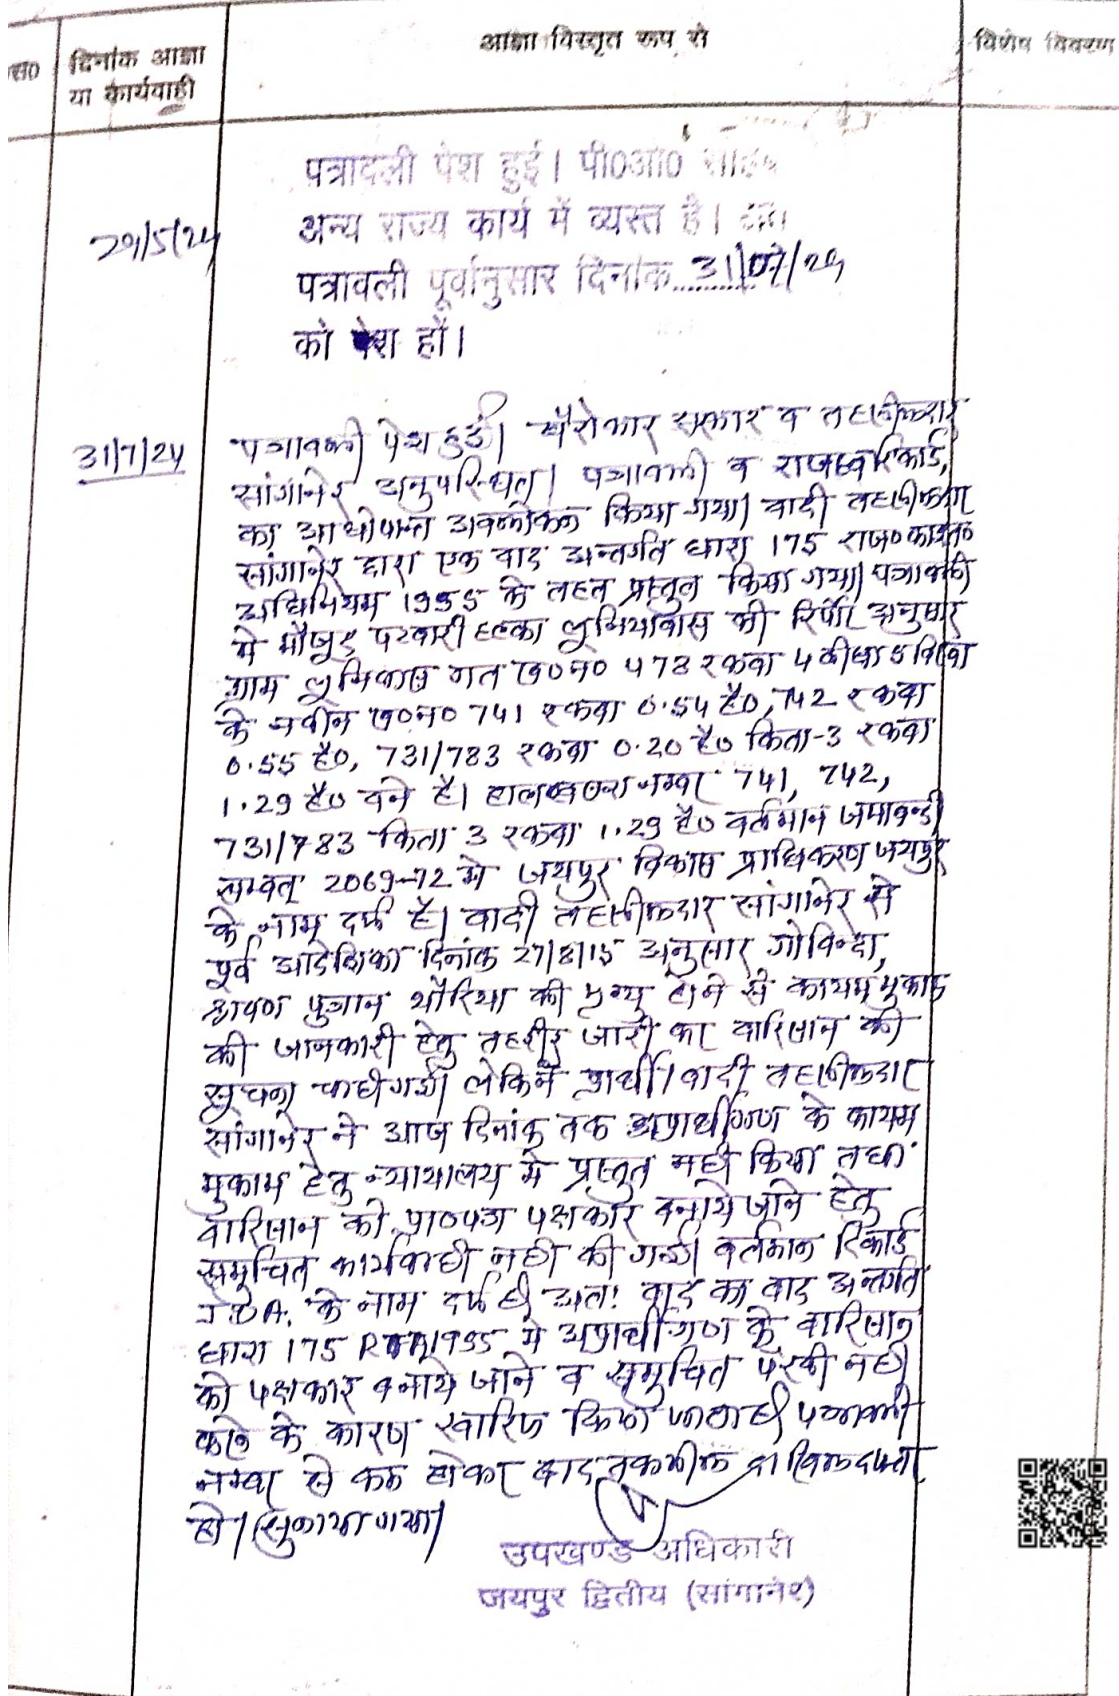 स0
दिनांक आज्ञा
या कार्यवाही
आज्ञा विस्तृत रूप से
विशेष विवरण
पत्रावली पेश हुई। पी0ओ0 साहब
29/5/24
अन्य राज्य कार्य में व्यस्त है।
पत्रावली पूर्वानुसार दिनांक........31/07/24
को पेश हों।
31/7/24
पत्रावली पेश हुई। पैरोकार सरकार व तहसीलदार
सांगानेर अनुपस्थित। पत्रावली व राजस्व रिकार्ड,
का आधोपान्त अवलोकन किया गया। वादी तहसीलदार
सांगानेर द्वारा एक वाद अन्तर्गत धारा 175 राज0 काश्त0
अधिनियम 1955 के तहत प्रस्तुत किया गया। पत्रावली
मे मौजुद पटवारी हल्का की रिर्पोट अनुसार
ग्राम गत ख0न0 478 रकबा 4 बीघा 5 बिस्वा
के नवीन ख0न0 741 रकबा 0.54 है0, 742 रकबा
0.55 है0, 731/783 रकबा 0.20 है0 किता-3 रकबा
1.29 है0 बने है। हाल खसरा नम्बर 741, 742,
731/783 किता 3 रकबा 1.29 है0 वर्तमान जमाबन्दी
सम्वत् 2069-72 मे जयपुर विकास प्राधिकरण जयपुर
के नाम दर्ज है। वादी तहसीलदार सांगानेर से
पूर्व आदेशिका दिनांक 27/8/15 अनुसार गोविन्दा,
श्रवण पुत्रान की मृत्यु होने से कायम मुकाम
की जानकारी हेतु तहरीर जारी कर वारिसान की
सूचना चाही गई। लेकिन प्रार्थी/वादी तहसीलदार
सांगानेर ने आज दिनांक तक अप्रार्थीगण के कायम
मुकाम हेतु न्यायालय मे प्रस्तुत नही किया तथा
वारिसान को प्रा0पत्र पक्षकार बनाये जाने हेतु
समुचित कार्यवाही नही की गई। वर्तमान रिकार्ड
J.D.A. के नाम दर्ज है अत: वाद अन्तर्गत
धारा 175 1955 मे अप्रार्थीगण के वारिसान
को पक्षकार बनाये जाने व समुचित पैरवी नही
करने के कारण खारिज किया जाता है। पत्रावली
नम्बर से कम होकर बाद तकमील दाखिल दफ्तर
हो। सुनाया गया।
उपखण्ड अधिकारी
जयपुर द्वितीय (सांगानेर)